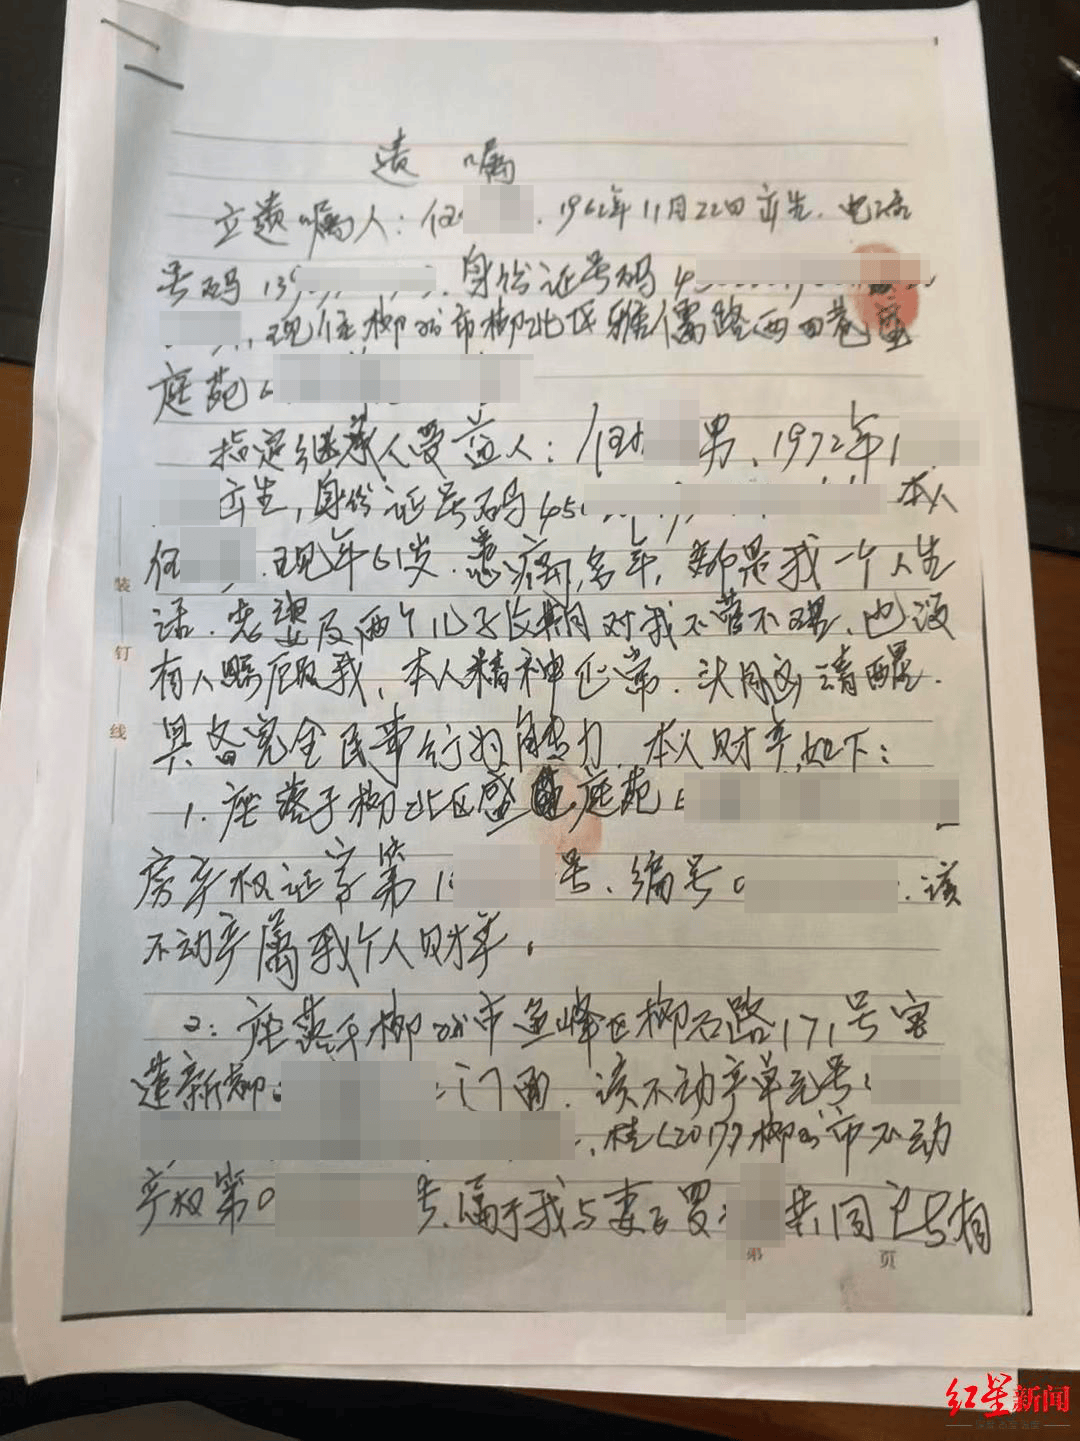 遗 嘱
立遗嘱人：任 ，1962年11月22日出生，电话
号码139 ，身份证号码4
，现住柳州市柳北区雅儒路西四巷盛
庭苑
指定继承人受益人：任 男，1972年1
出生，身份证号码45 本人
任 ，现年61岁，患病多年，都是我一个人生
活，老婆及两个儿子长期对我不管不理，也没
有人照顾我，本人精神正常，头脑清醒，
具备完全民事行为能力，本人财产如下：
1、座落于柳北区盛 庭苑
房产权证字第1 号，编号0 ，该
不动产属我个人财产。
2：座落于柳州市鱼峰区柳石路171号
新柳 门面，该不动产单元号：
，桂(2017)柳州市不动
产权第0 号，属于我与妻子罗 共同 有相
装
订
线
第 页
红星新闻
深度 态度 温度